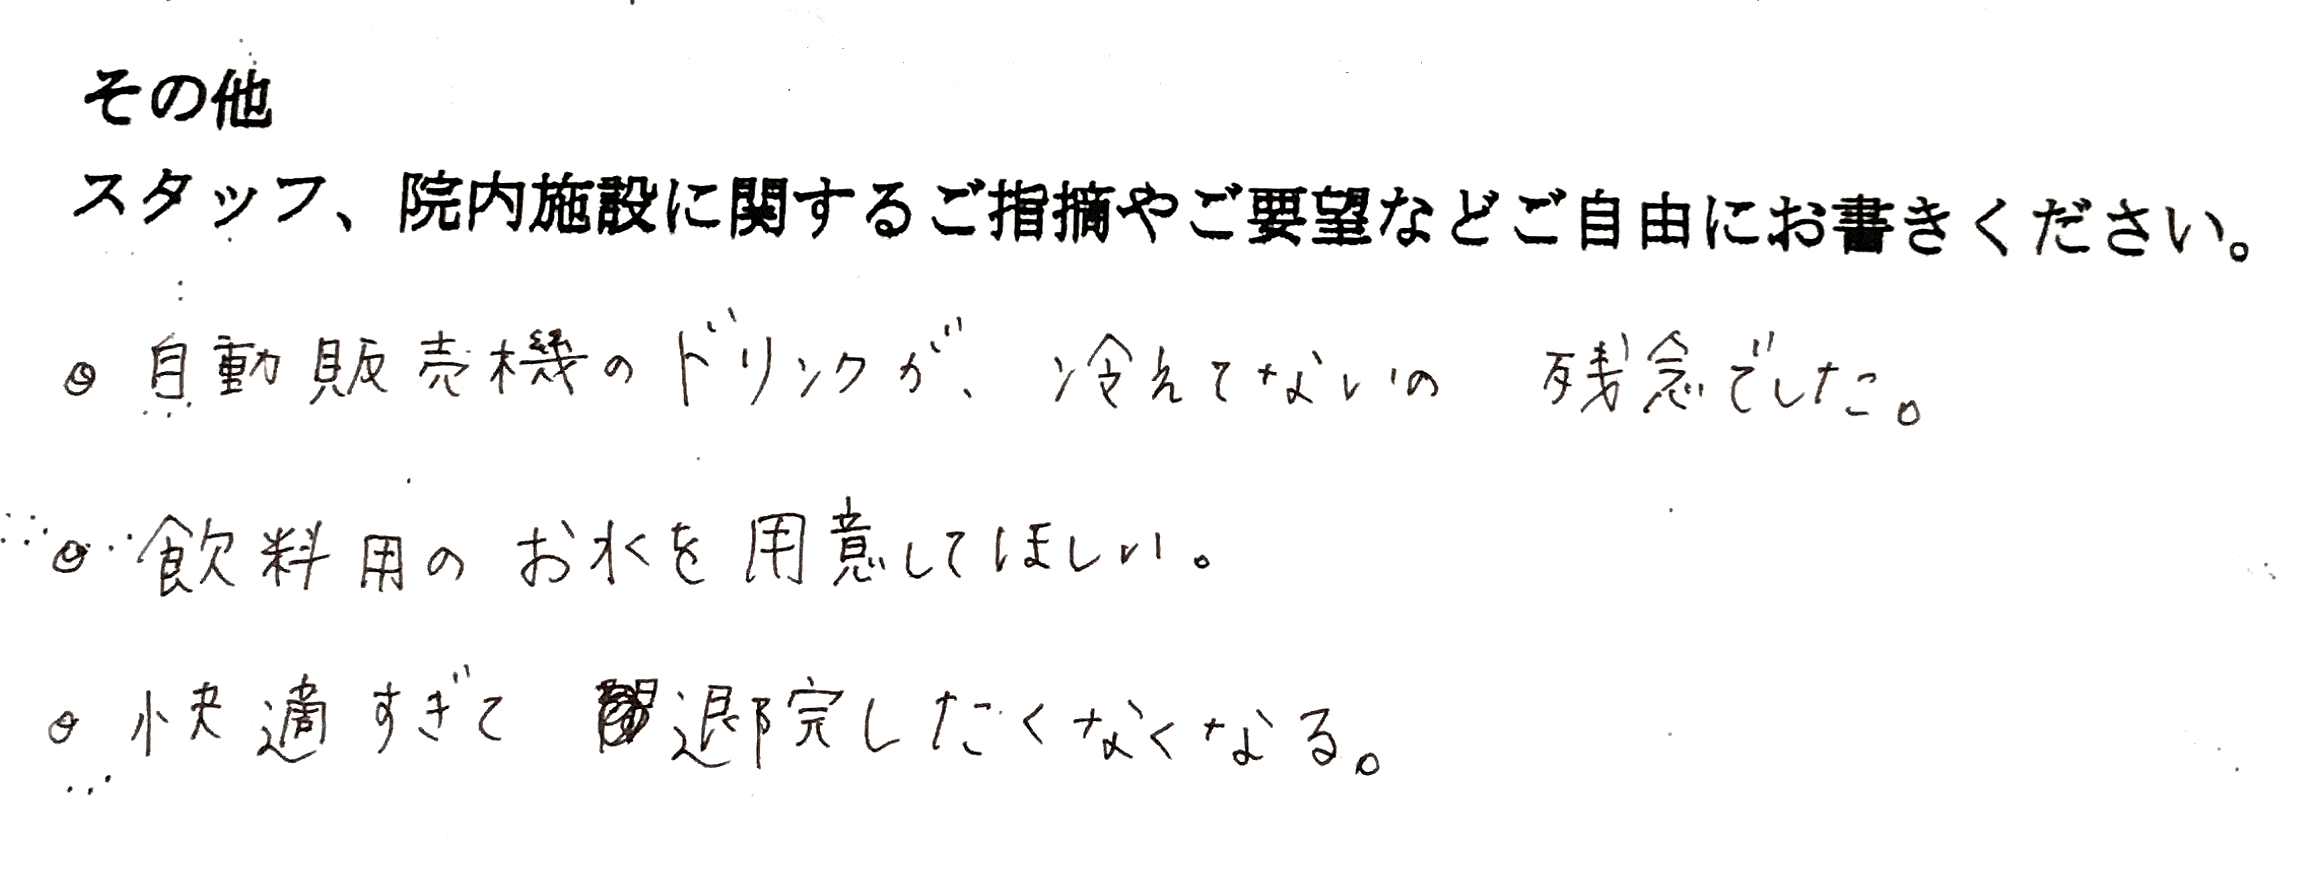 その他
スタッフ、院内施設に関するご指摘やご要望などご自由にお書きください。
◎ 自動販売機のドリンクが、冷えてないの 残念でした。
◎ 飲料用の お水を 用意してほしい。
◎ 快適すぎて 退院したくなくなる。